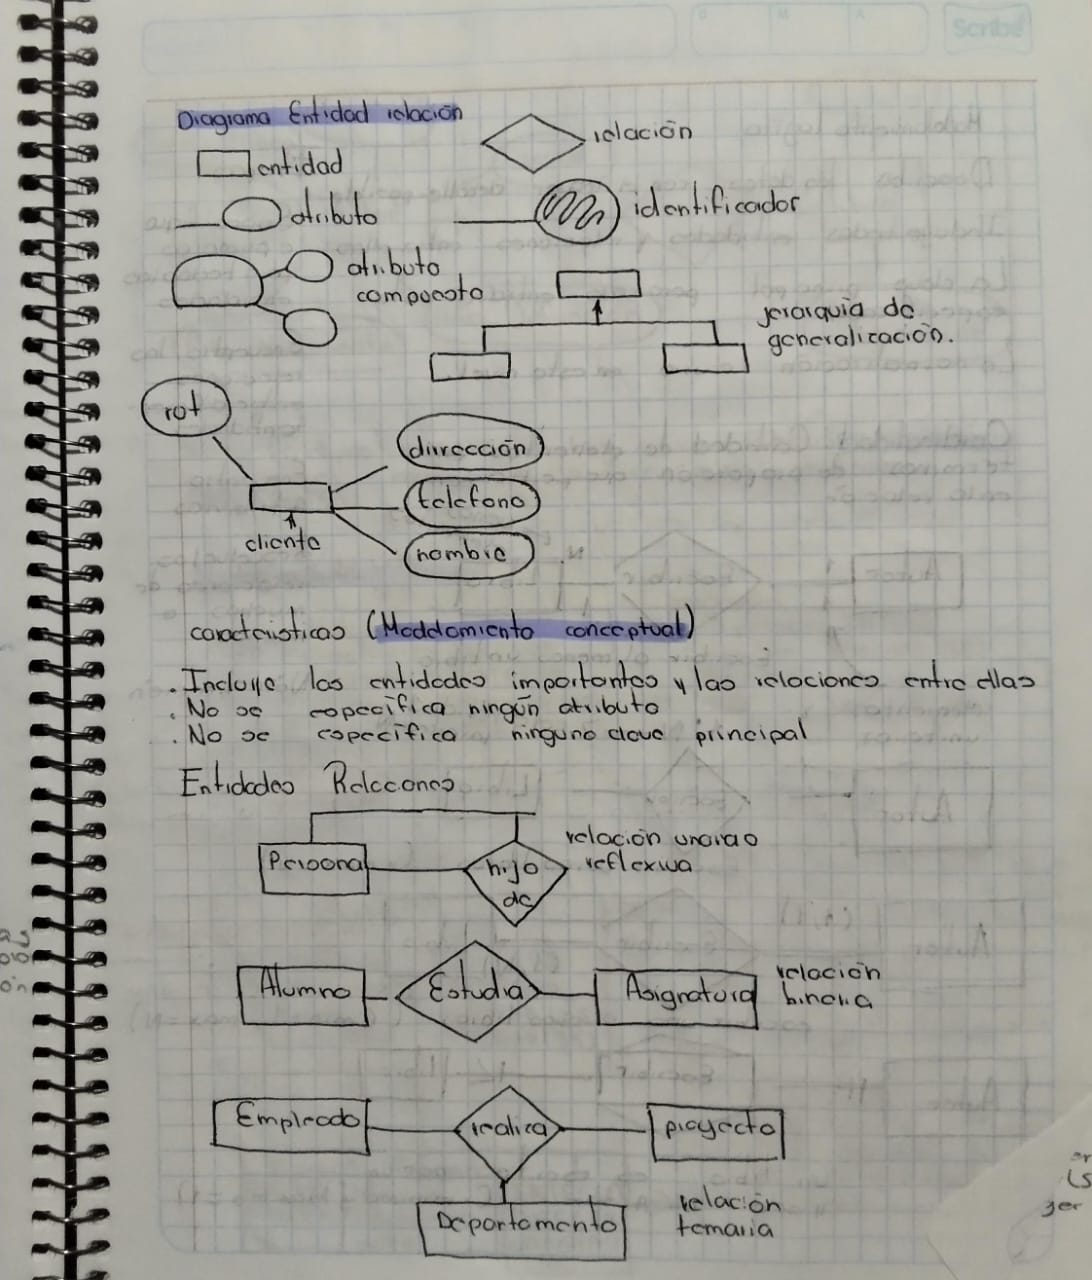 Scribe
Diagrama Entidad relación
relación
entidad
atributo
identificador
atributo
compuesto
jerarquia de
generalización.
rot
dirección
telefono
nombre
cliente
caracteristicas (Modelamiento conceptual)
. Incluye las entidades importantes y las relaciones entre ellas
. No se especifica ningún atributo
. No se especifica ninguna clave principal
Entidades Relaciones
Persona
hijo
de
relación unaria o
reflexiva
Alumno
Estudia
Asignatura
relación
binaria
Empleado
realiza
proyecto
Departamento
relación
ternaria